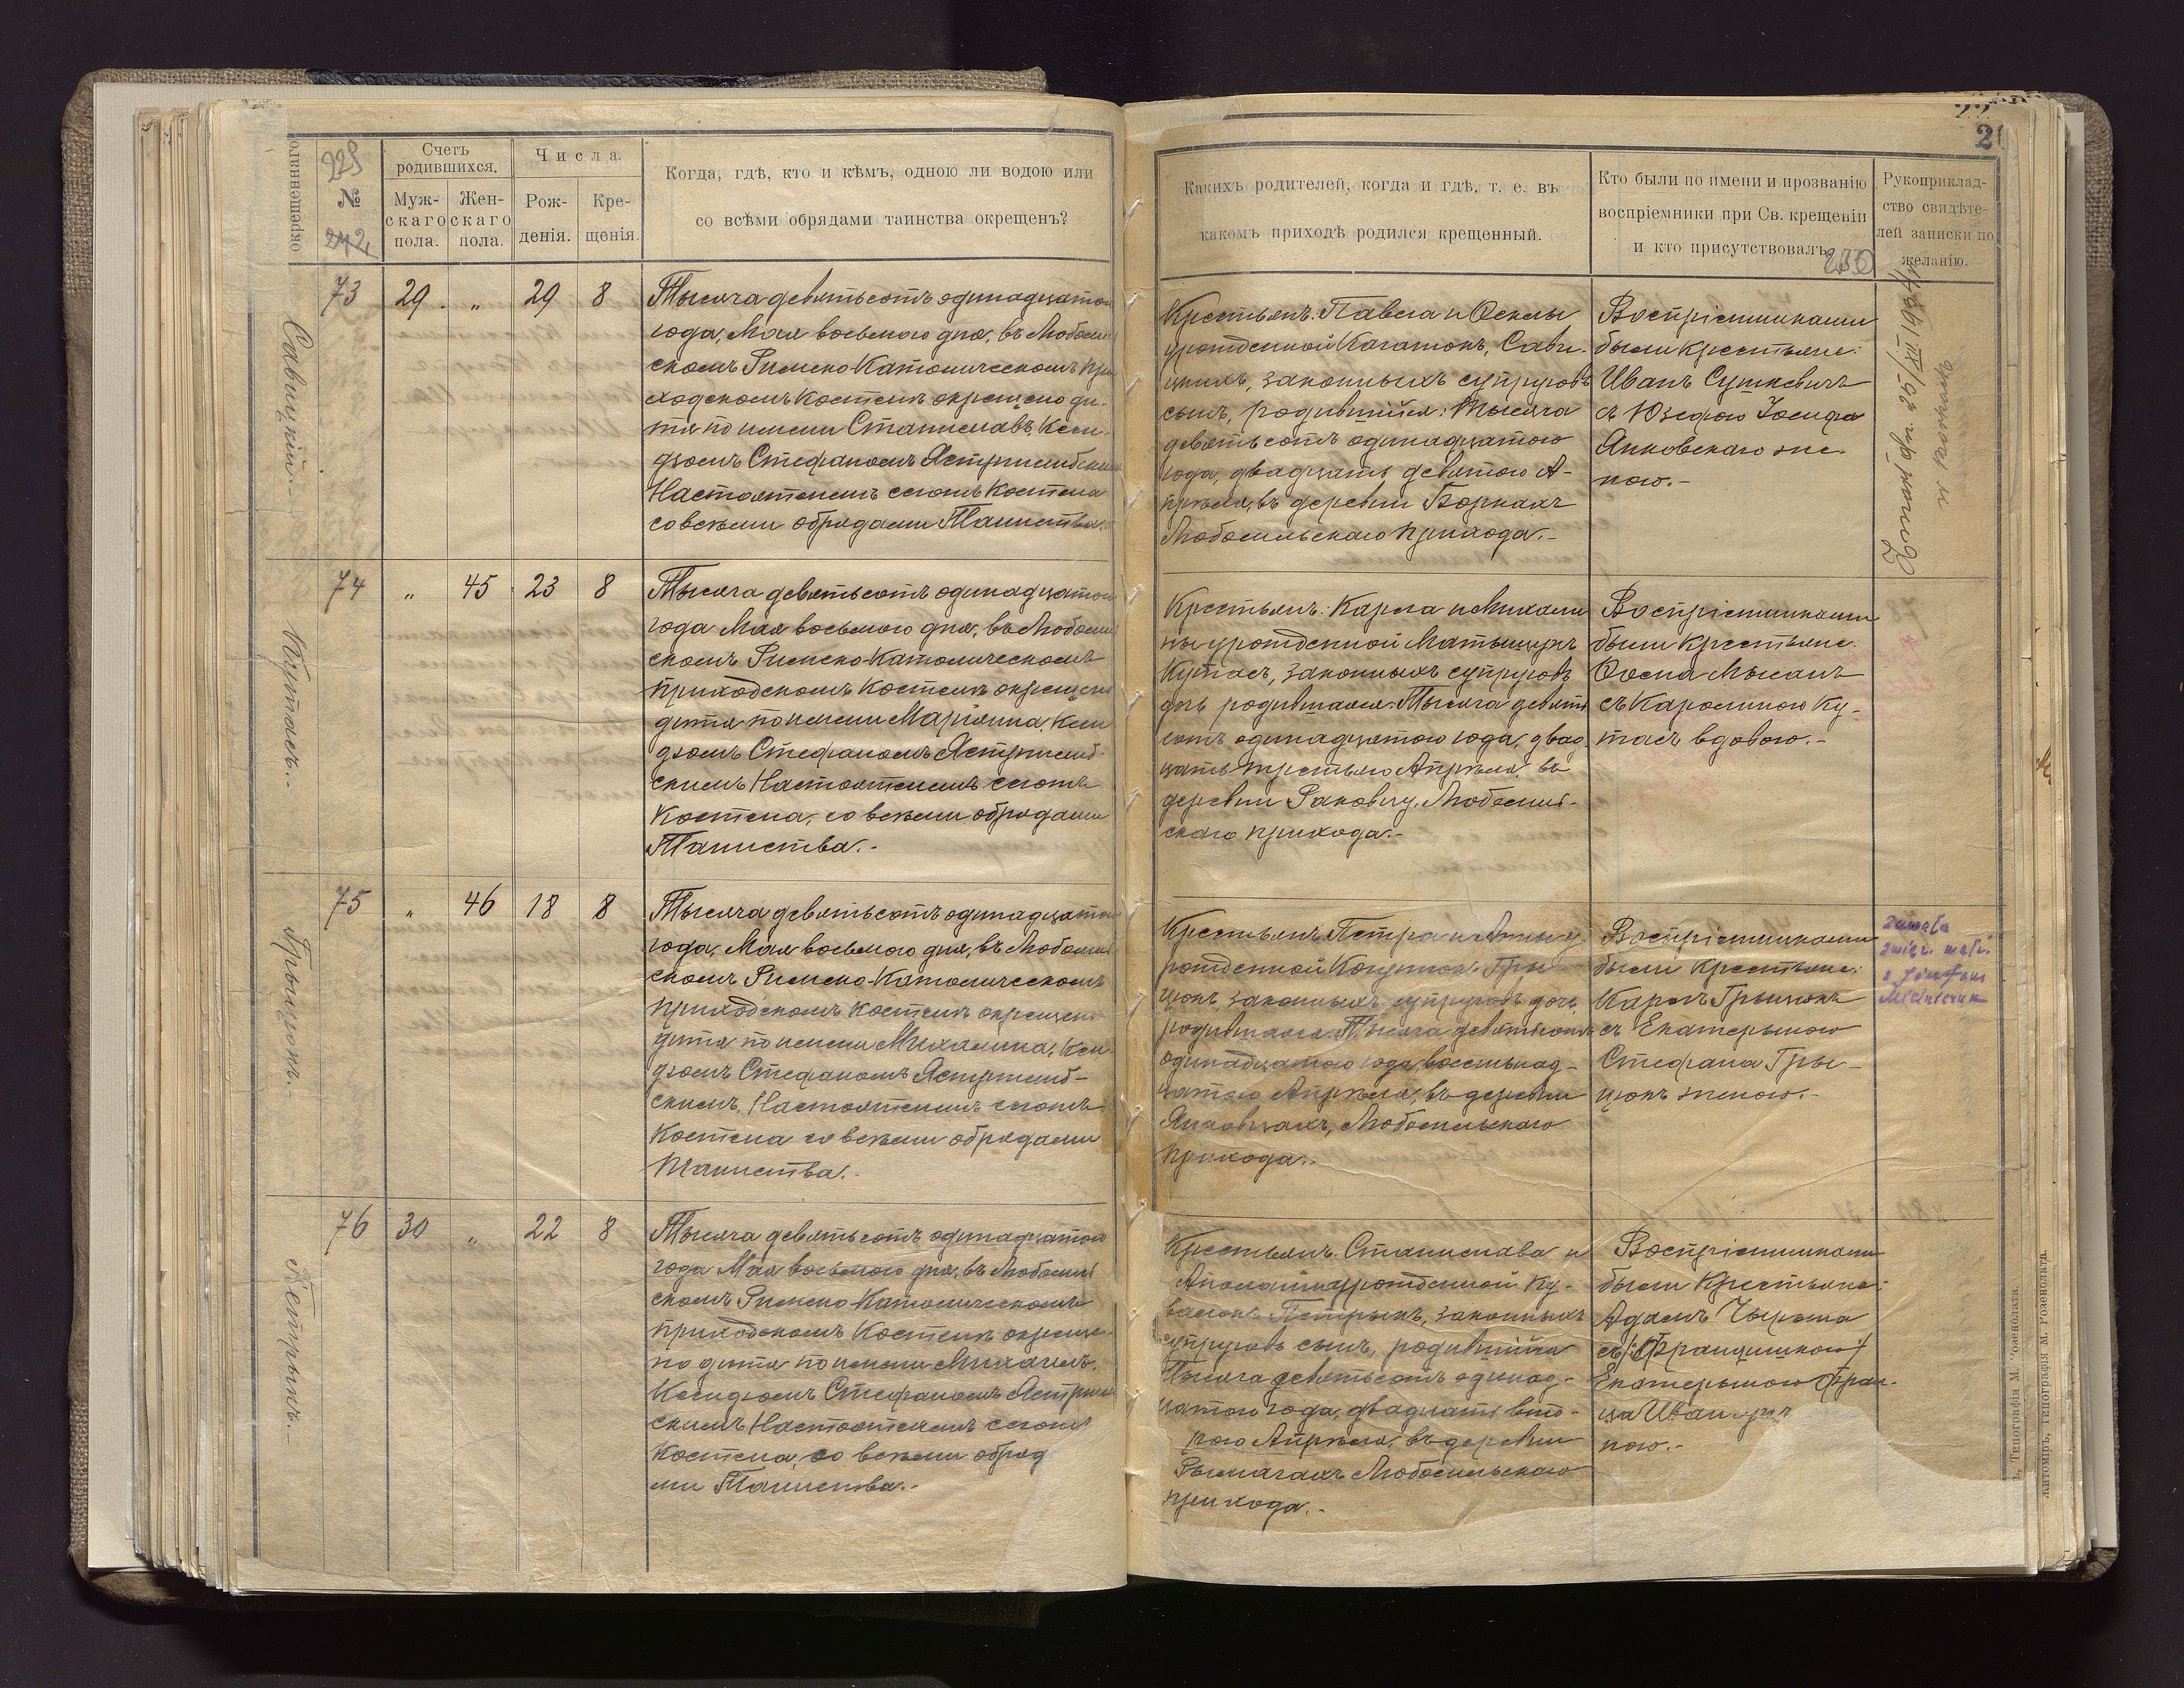 окрещеннаго
228
№
242
Счетъ
родившихся.
Муж-
скаго
пола.
Жен-
скаго
пола.
Числа.
Рож-
денія.
Кре-
щенія.
Когда, гдѣ, кто и кѣмъ, одною ли водою или
со всѣми обрядами таинства окрещенъ?
Савицкій.-
73
29.
"
29
8
Тысяча девятьсотъ одинадцатою
года, Мая восьмого дня, въ Любомль
скомъ Римско-Католическомъ При
ходскомъ Костелѣ окрещено ди-
тя по имени Станиславъ, Ксен-
дзомъ Стефаномъ Ястржембским
Настоятелемъ сегожъ Костела
со всѣми обрядами Таинства.
Кутасъ.-
74
"
45
23
8
Тысяча девятьсотъ одинадцатою
года Мая восьмого дня, въ Любомль
скомъ Римско-Католическомъ
приходскомъ Костелѣ окрещено
дитя по имени Маріянна, Ксен
дзомъ Стефаномъ Ястржемб-
скимъ Настоятелемъ сегожъ
Костела, со всѣми обрядами
Таинства.-
Грыцюкъ.-
75
"
46
18
8
Тысяча девятьсотъ одинадцато
года, Мая восьмого дня, въ Любомль
скомъ Римско-Католическомъ
приходскомъ Костелѣ окрещено
дитя по имени Михалина, Ксен
дзомъ Стефаномъ Ястржемб-
скимъ, Настоятелемъ сегожъ
Костела со всѣми обрядами
Таинства.-
Петрыкъ.-
76
30
"
22
8
Тысяча девятьсотъ одинадцатою
года Мая восьмого дня, въ Любомль
скомъ Римско-Католическомъ
приходскомъ Костелѣ окреще-
но дитя по имени Михаилъ,
Ксендзомъ Стефаномъ Ястржем
скимъ Настоятелемъ сегожъ
Костела, со всѣми обряд
ми Таинства.-
2
Какихъ родителей, когда и гдѣ, т. е. въ
какомъ приходѣ родился крещенный.
Кто были по имени и прозванію
воспріемники при Св. крещеніи
и кто присутствовалъ.
230
Рукоприклад-
ство свидѣте-
лей записки по
желанію.
Крестьянъ: Павла и Феклы
урожденной Каганюкъ, Сави-
цкихъ, законныхъ супруговъ
сынъ, родившійся: Тысяча
девятьсотъ одинадцатою
года, двадцать девятою А-
прѣля, въ деревни Боркахъ
Любомльскаго прихода.-
Воспріемниками
были крестьяне:
Иванъ Сушкевичъ
съ Юзефою Іосифа
Янковскаго же-
ною.-
Крестьянъ: Карла и Михали
ны урожденной Матыщукъ
Кутасъ, законныхъ супруговъ
дочь родившаяся: Тысяча девять
сотъ одинадцатою года, двад
цать третьяго Апрѣля, въ
деревни Раковцу, Любомль-
скаго прихода.-
Воспріемниками
были крестьяне
съ Каролиною Ку-
тасъ вдовою.-
Крестьянъ Петра и Анны у
рожденной Гры-
цюкъ, законныхъ супруговъ дочь,
родившаяся: Тысяча девятьсотъ
одинадцатою года, восемьнад-
цатою Апрѣля, въ деревни
Янковцахъ, Любомльскаго
прихода.-
Воспріемниками
были крестьяне:
Карлъ Грыцюкъ
съ Екатерыною
Стефана Гры-
цюкъ женою.-
Крестьянъ: Станислава и
урожденной Ку-
Петрыкъ, законныхъ
супруговъ сынъ, родившійся
Тысяча девятьсотъ одинад-
цатою года, двадцать вто-
рою Апрѣля, въ деревни
Рымачахъ Любомльскаго
прихода.-
Воспріемниками
были крестьяне:
Адамъ Чырыпа
съ Францишкою
Екатерыною Фран-
ца
ною.-
Житомиръ, Типографія М. Розенолата.